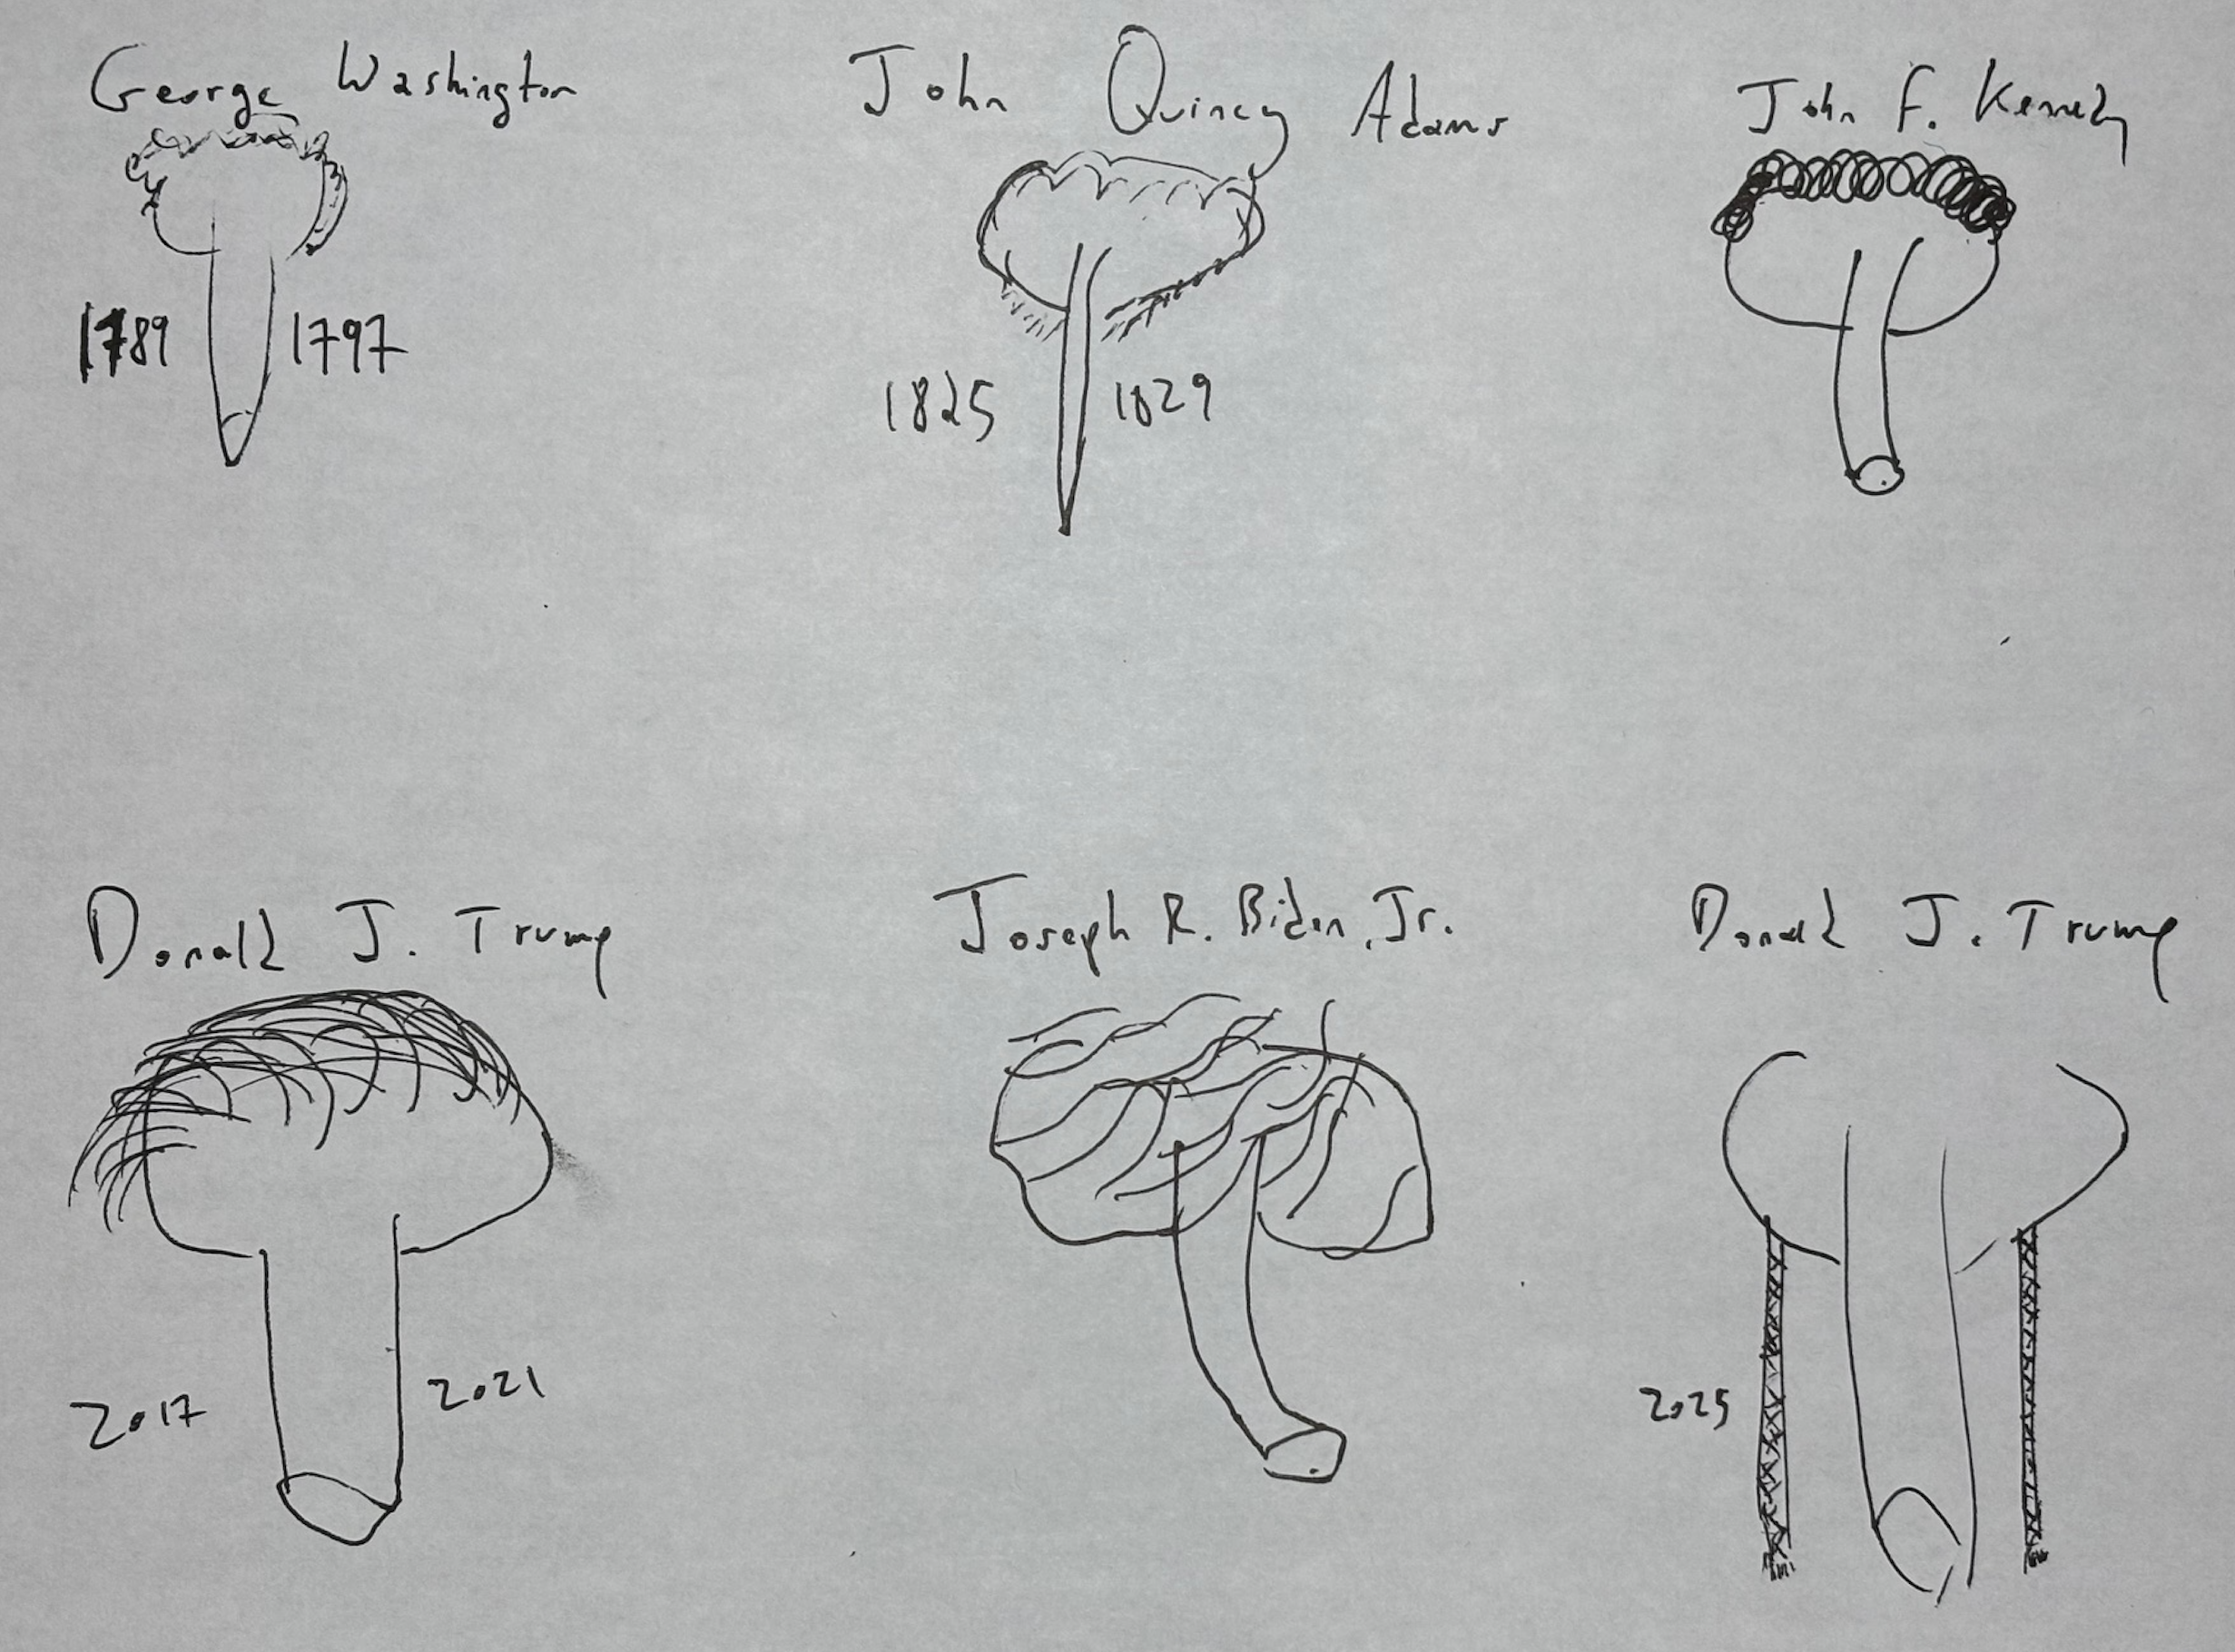 George Washington
John Quincy Adams
John F. Kennedy
1789
1797
1825
1829
Donald J. Trump
Joseph R. Biden, Jr.
Donald J. Trump
2017
2021
2025